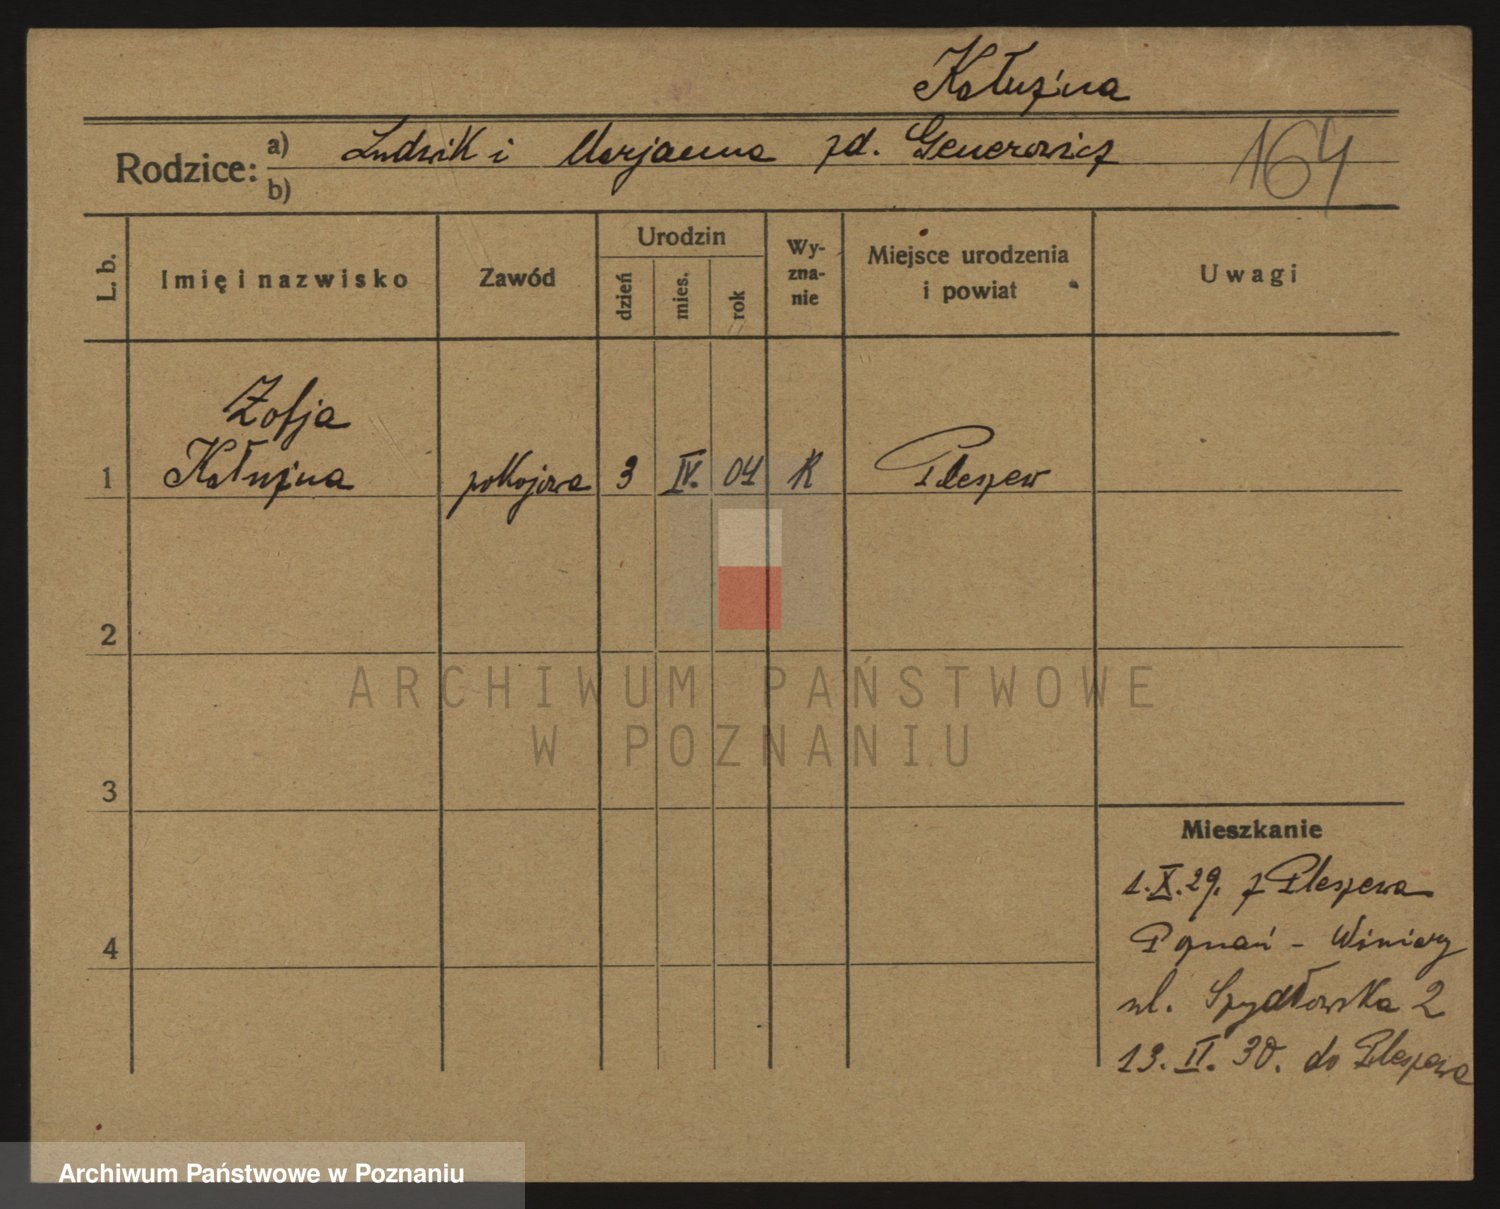 Kałużna
Rodzice: a) Ludwik i Marjanna zd. Generowicz
b)
164
L. b.
Imię i nazwisko
Zawód
Urodzin
dzień
mies.
rok
Wy-
zna-
nie
Miejsce urodzenia
i powiat
Uwagi
Zofja
1 Kałużna pokojowa 3 IV. 04 K Pleszew
2
ARCHIWUM PAŃSTWOWE
W POZNANIU
3
Mieszkanie
1.X.29. z Pleszewa
4 Poznań - Winiary
ul. Szydłowska 2
13. II. 30. do Pleszewa
Archiwum Państwowe w Poznaniu